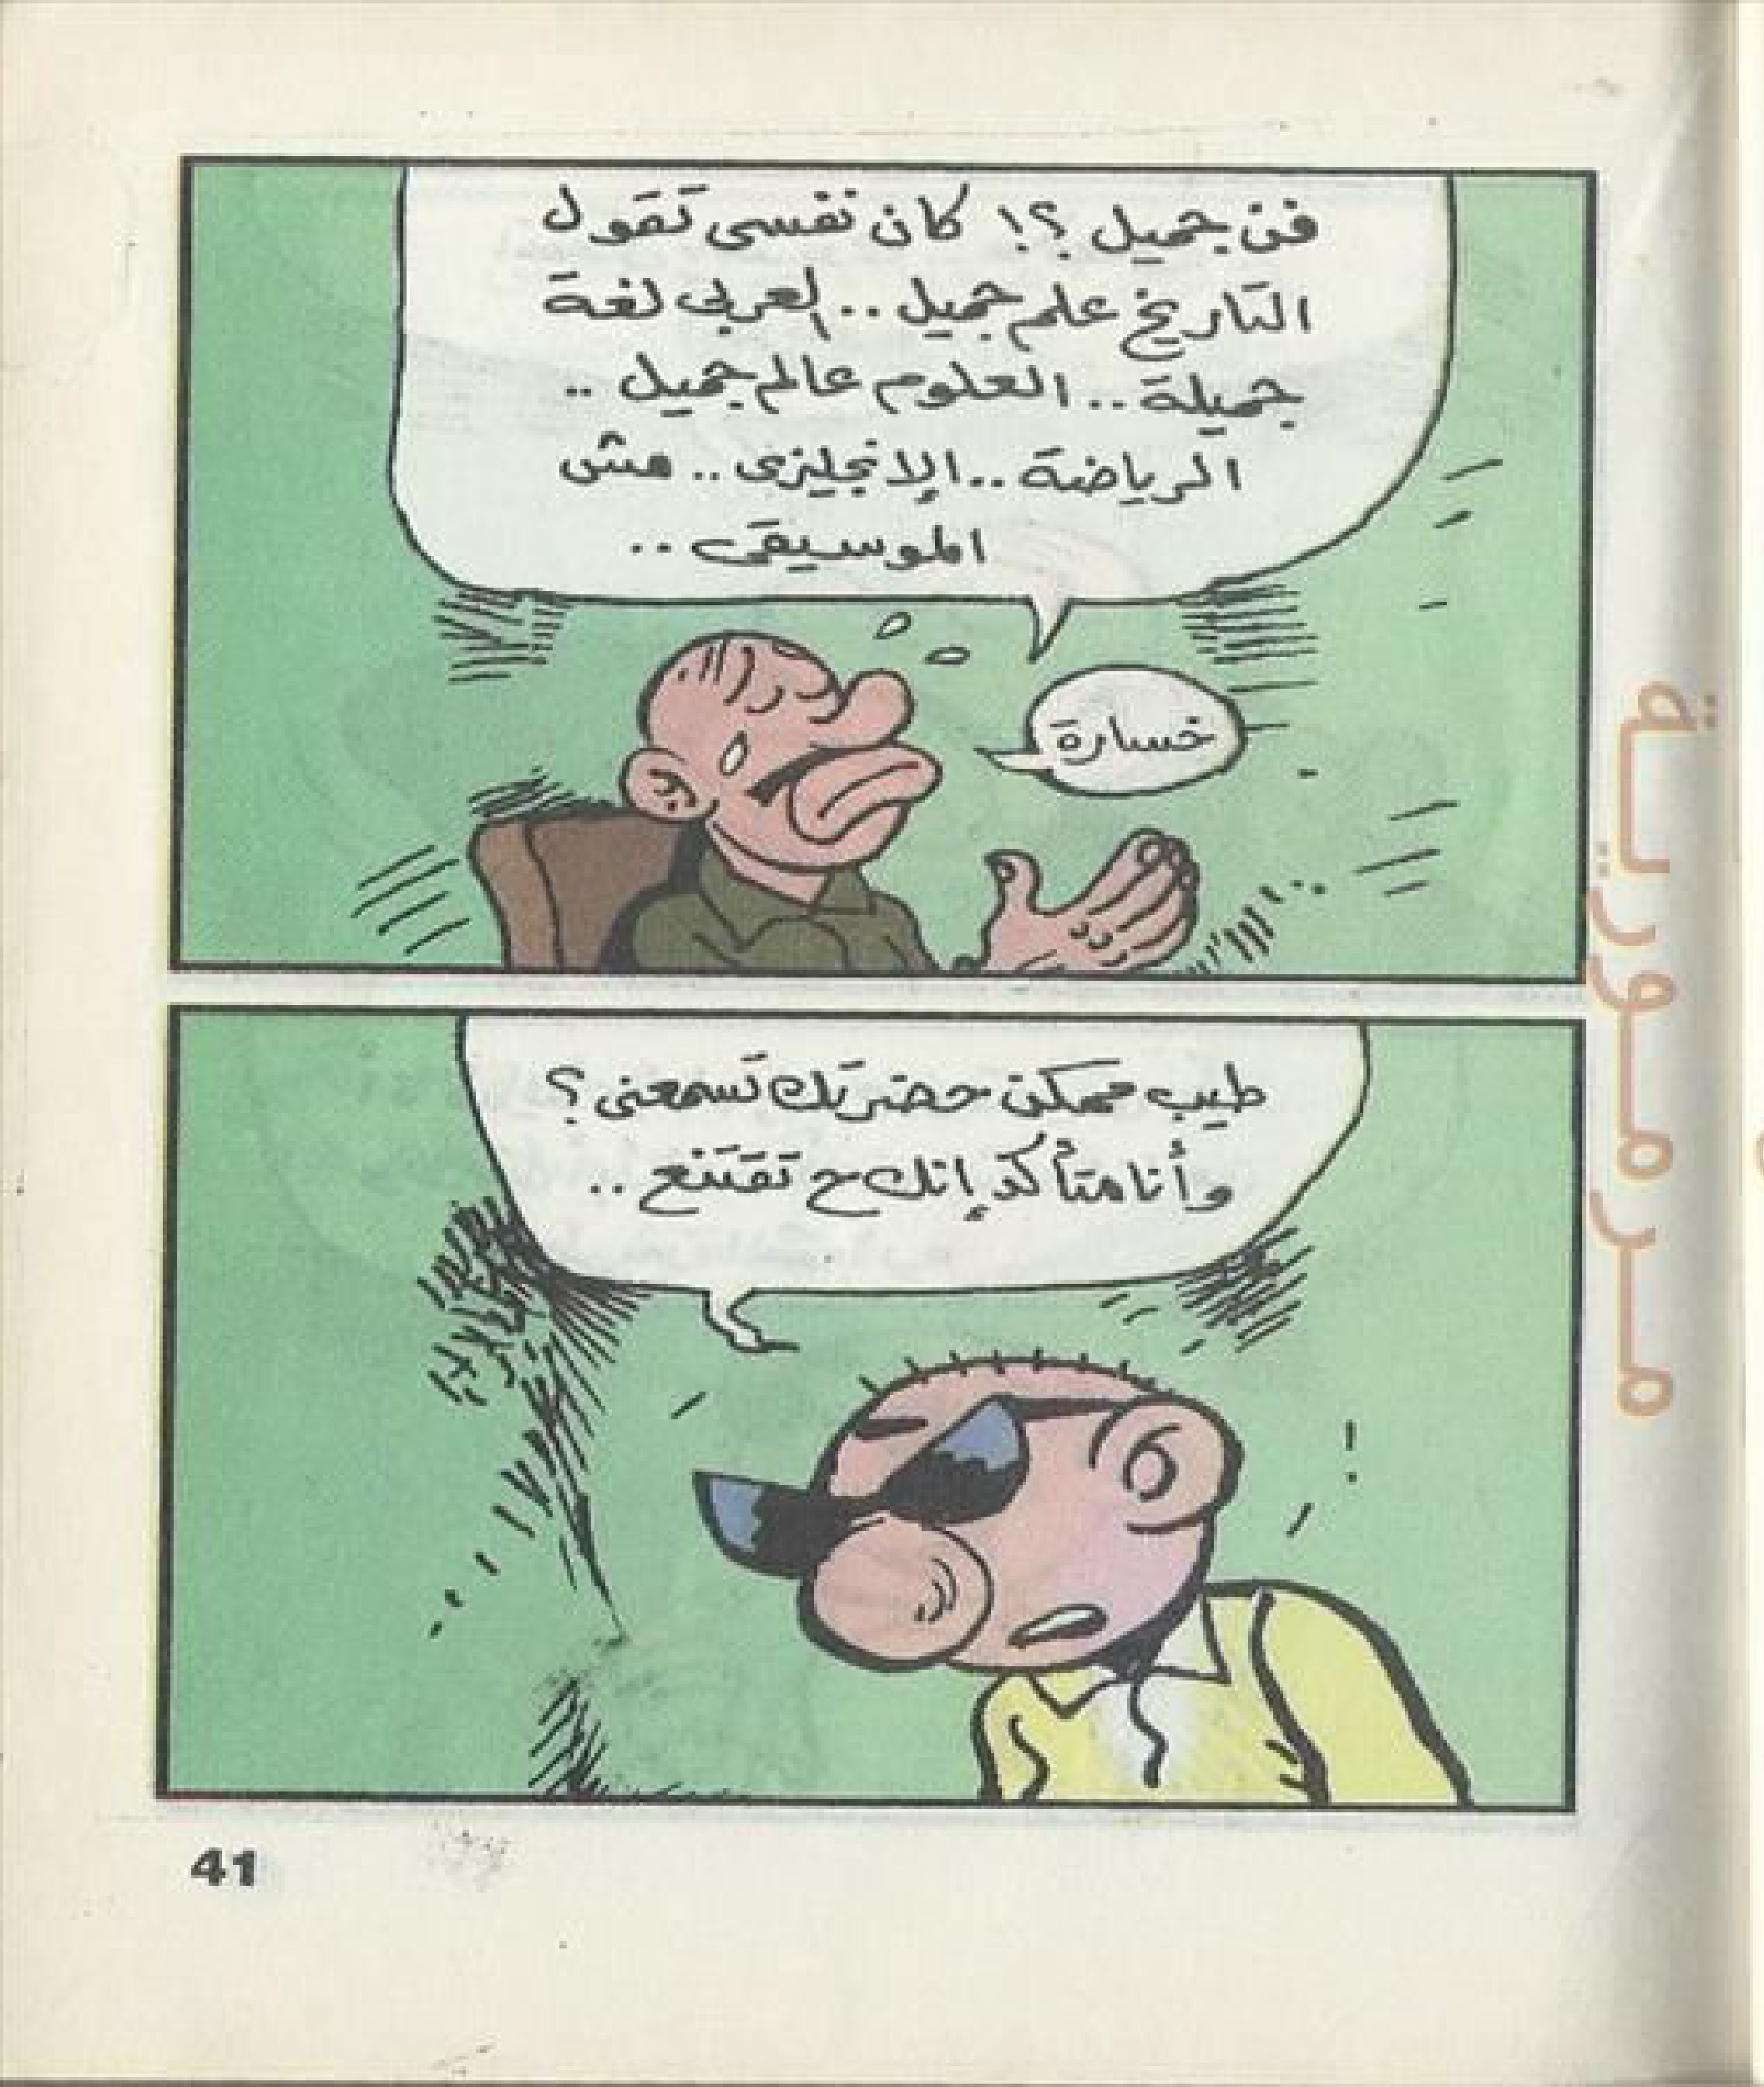 فن جميل ؟! كان نفسى تقول
التاريخ علم جميل .. العربى لغة
جميلة .. العلوم عالم جميل ..
الرياضة .. الإنجليزى .. مش
الموسيقى ..
خسارة
طيب ممكن حضرتك تسمعنى ؟
وأنا متأكد إنك ح تقتنع ..
41
مرمورية